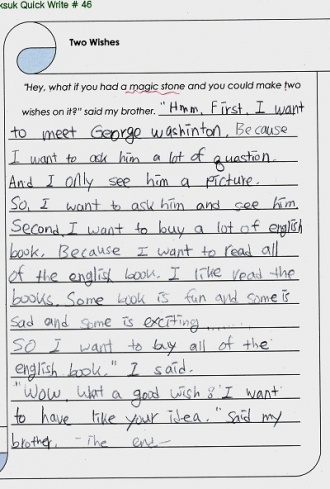 ksuk Quick Write # 46
Two Wishes
"Hey, what if you had a magic stone and you could make two
wishes on it?" said my brother. "Hmm, First, I want
to meet George washinton, Because
I want to ask him a lot of quastion.
And I only see him a picture.
So, I want to ask him and see him.
Second, I want to buy a lot of english
book, Because I want to read all
of the english book. I like read the
books. Some book is fun and some is
sad and some is exciting........
SO I want to buy all of the
english book." I said.
"Wow, what a good wish! I want
to have like your idea." said my
brother. - The end -